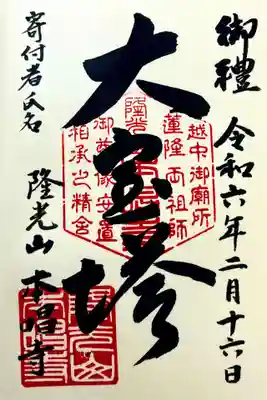 御禮
令和六年二月十六日
越中御廟所
蓮隆両祖師
大宝塔
隆光山
御尊像安置
相承之精舎
寄付者氏名
隆光山
本唱寺